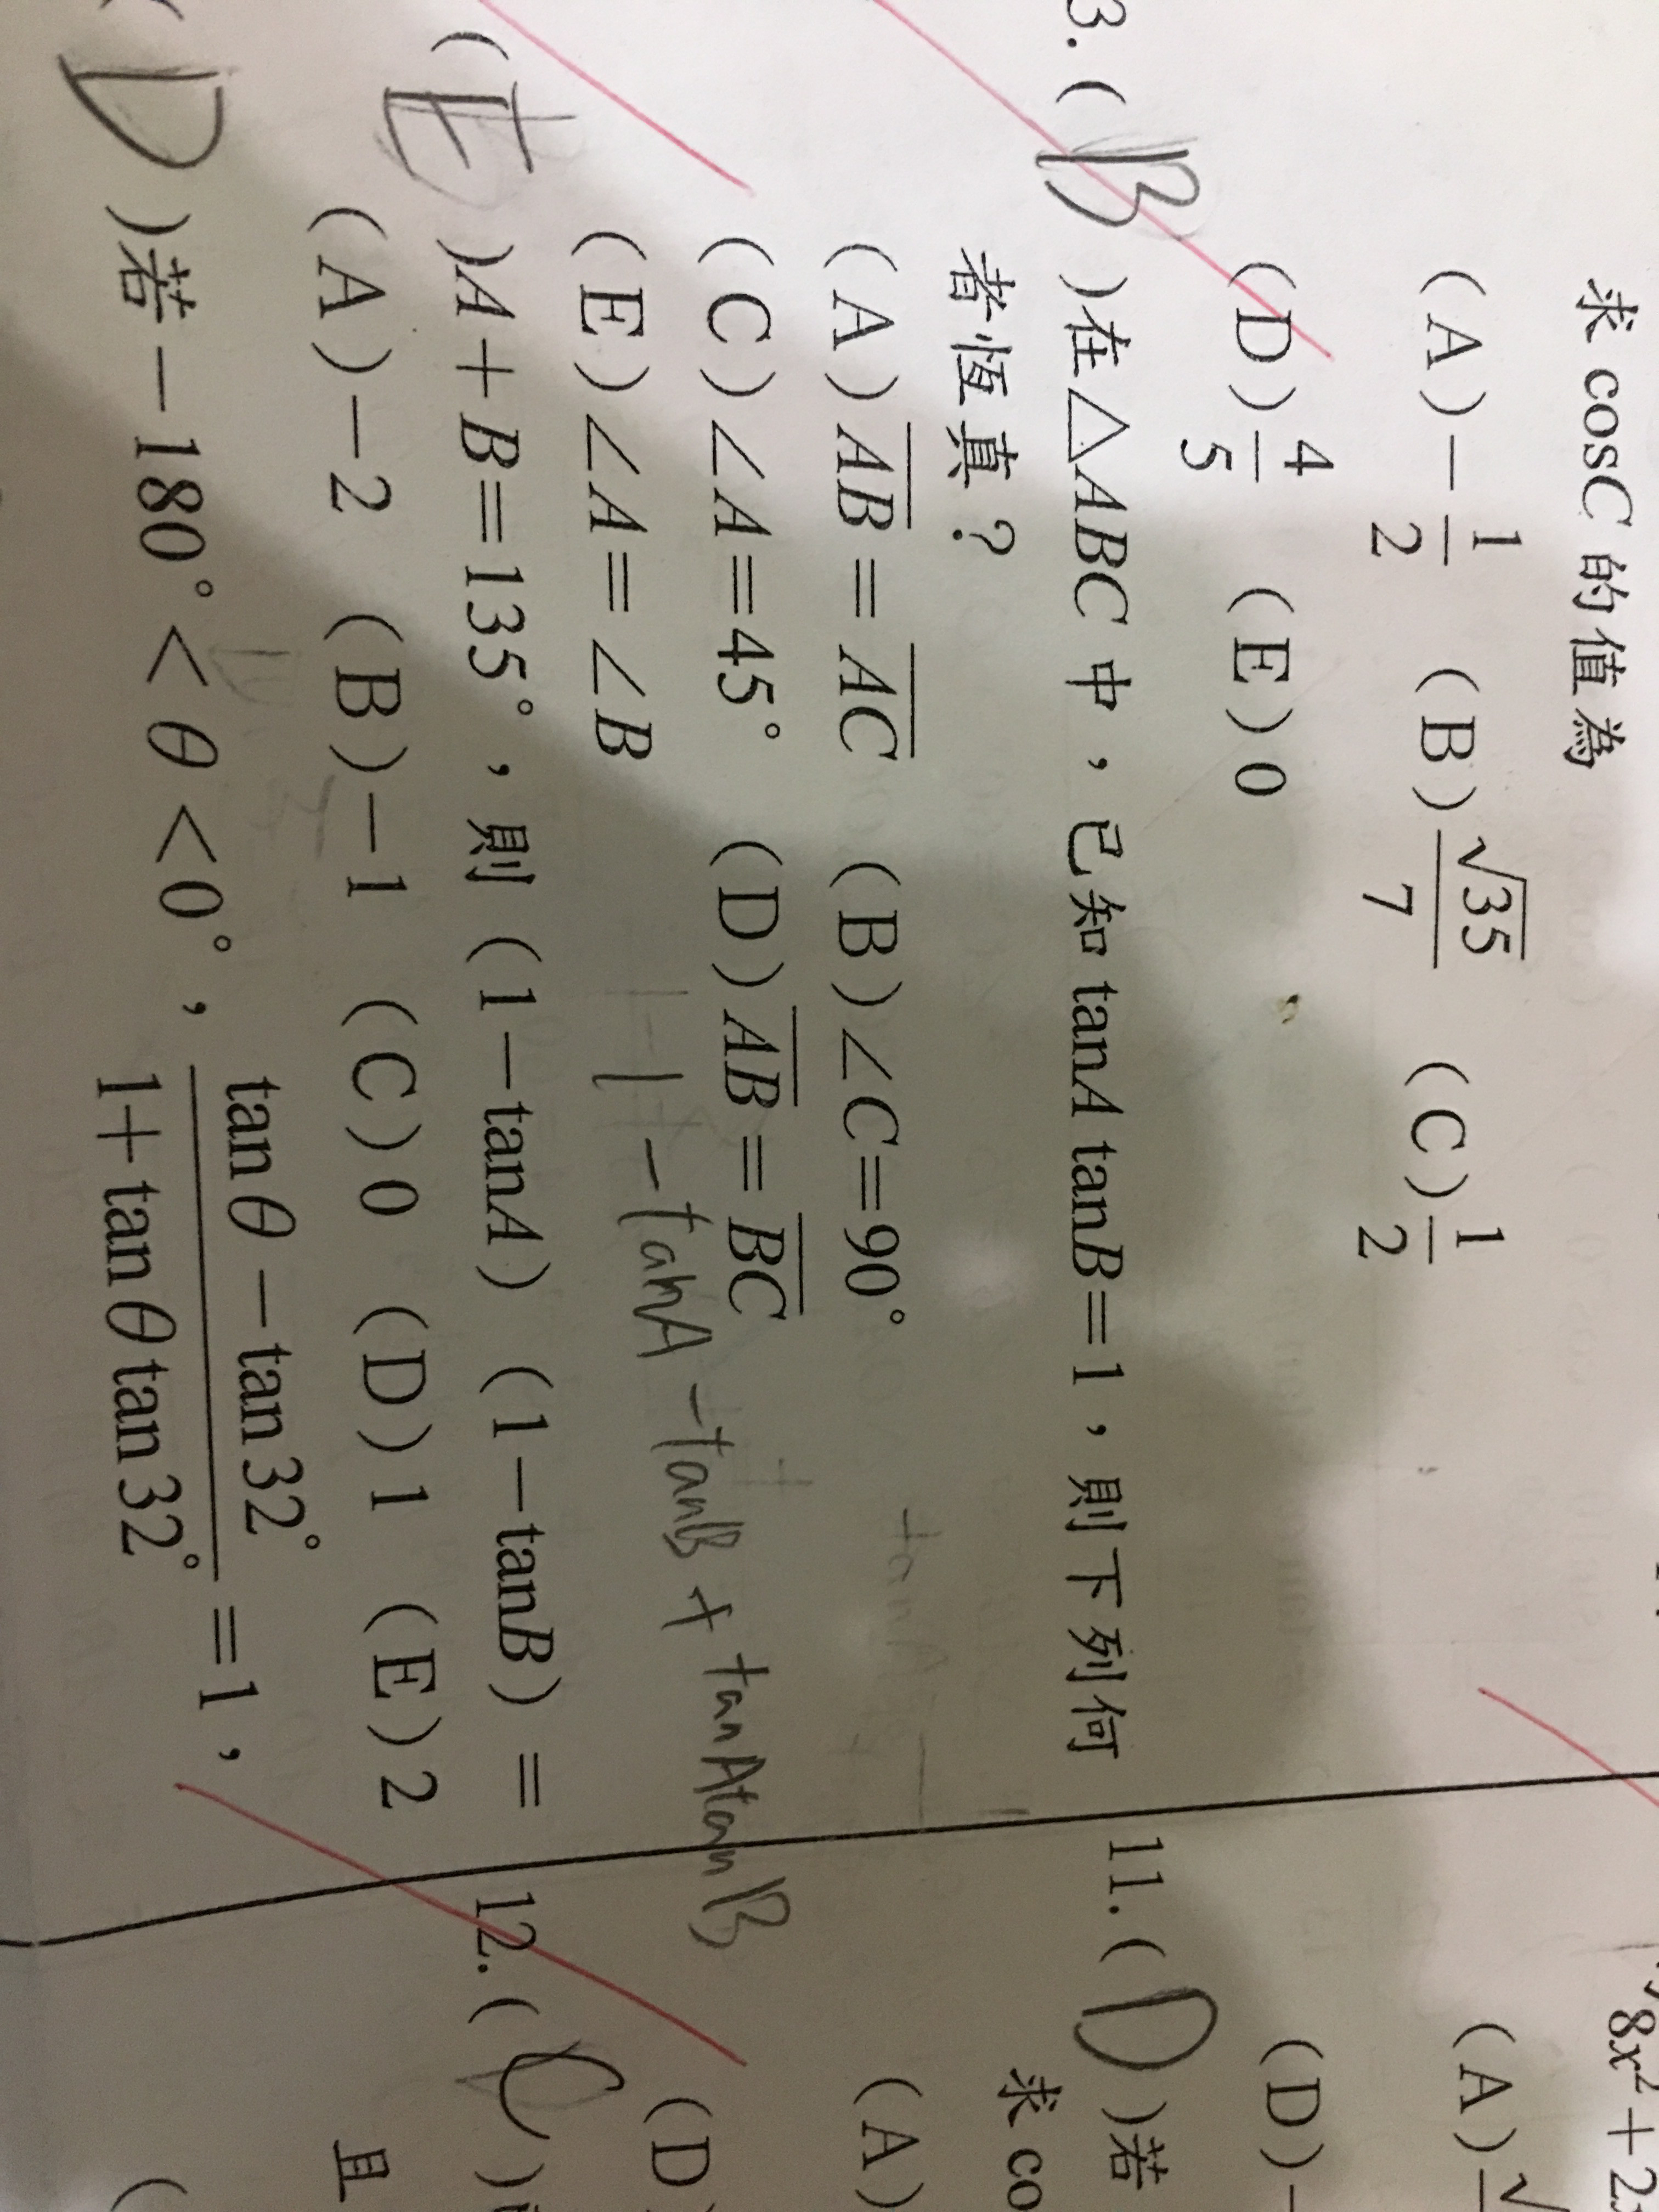 求 cosC 的值為
(A)-1/2 (B)√35/7 (C)1/2
(D)4/5 (E)0
3.( B )在△ABC 中，已知 tanA tanB=1，則下列何
者恆真？
(A)AB=AC (B)∠C=90°
(C)∠A=45° (D)AB=BC
(E)∠A=∠B
1-tanA-tanB+tanAtanB
( E )A+B=135°，則（1-tanA）（1-tanB）=
(A)-2 (B)-1 (C)0 (D)1 (E)2
( D )若-180°<θ<0°，(tanθ-tan32°)/(1+tanθtan32°)=1，
(A)
(D)-
11.( D )若
求 co
(A)
(D)
12.( C )
且
(